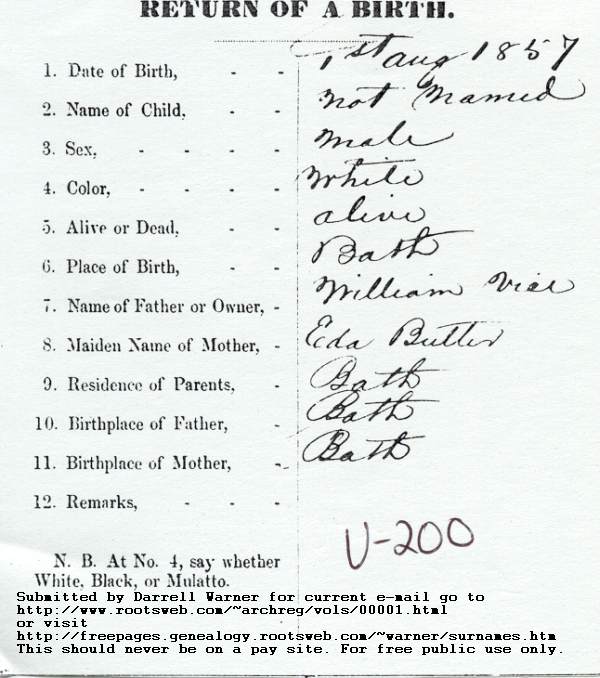 RETURN OF A BIRTH.
1. Date of Birth, - - 1st Aug 1857
2. Name of Child, - - not Named
3. Sex, - - - - male
4. Color, - - - - White
5. Alive or Dead, - - alive
6. Place of Birth, - - Bath
7. Name of Father or Owner, - William Vice
8. Maiden Name of Mother, - Eda Butler
9. Residence of Parents, - Bath
10. Birthplace of Father, - Bath
11. Birthplace of Mother, - Bath
12. Remarks, - - -
V-200
N. B. At No. 4, say whether
White, Black, or Mulatto.
Submitted by Darrell Warner for current e-mail go to
http://www.rootsweb.com/~archreg/vols/00001.html
or visit
http://freepages.genealogy.rootsweb.com/~warner/surnames.htm
This should never be on a pay site. For free public use only.